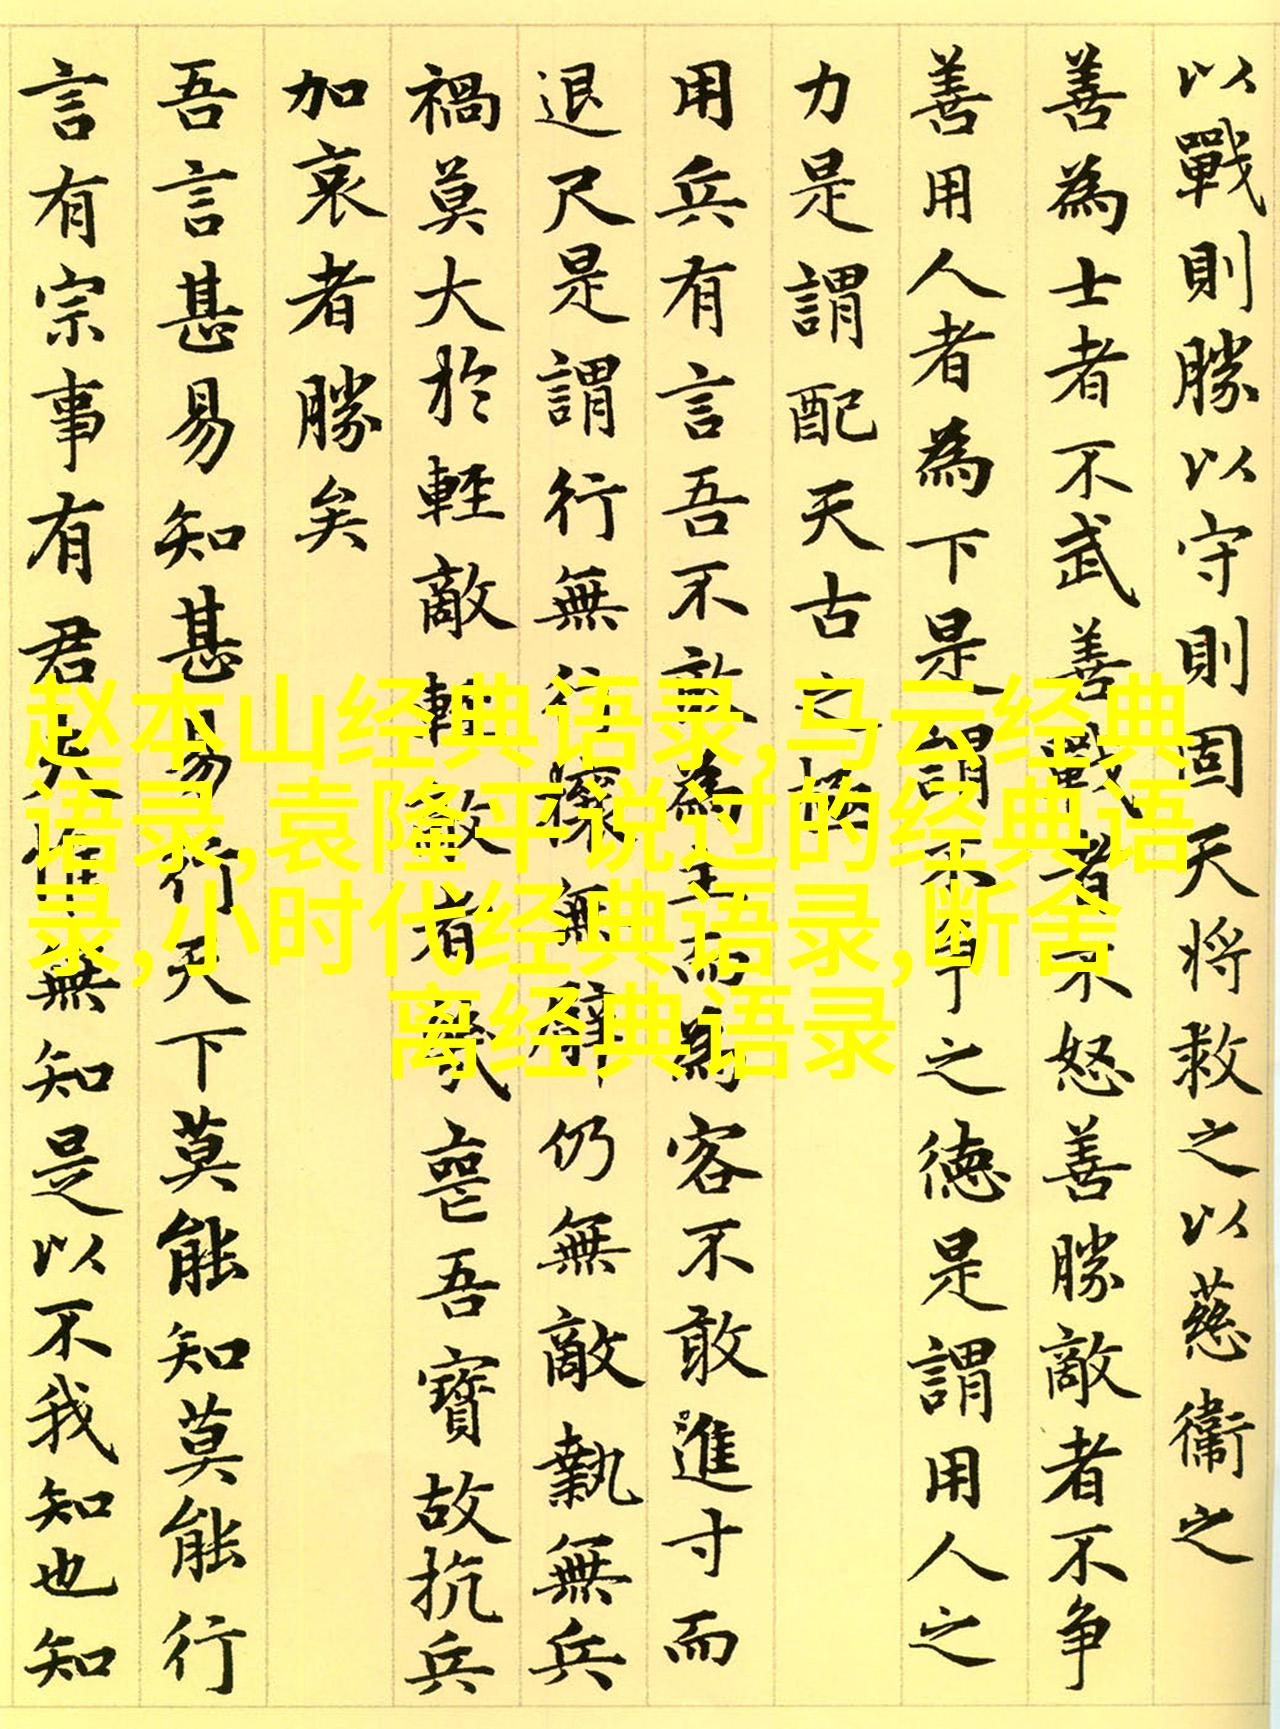 以戰則勝以守則固天将救之以慈衞之
善為士者不武善戰者不怒善勝敵者不争
善用人者為下是謂不争之德是謂用人之
力是謂配天古之極
用兵有言吾不敢為主而為客不敢進寸而
退尺是謂行無行攘無臂仍無敵執無兵
禍莫大於輕敵輕敵者幾喪吾寶故抗兵
加哀者勝矣
吾言甚易知甚易行天下莫能知莫能行
言有宗事有君夫惟無知是以不我知也知
赵本山经典语录,马云经典
语录,袁隆平说过的经典语
录,小时代经典语录,断舍
离经典语录